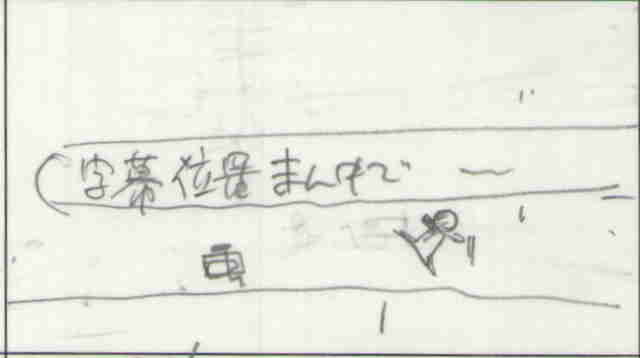 字幕位置まん中で